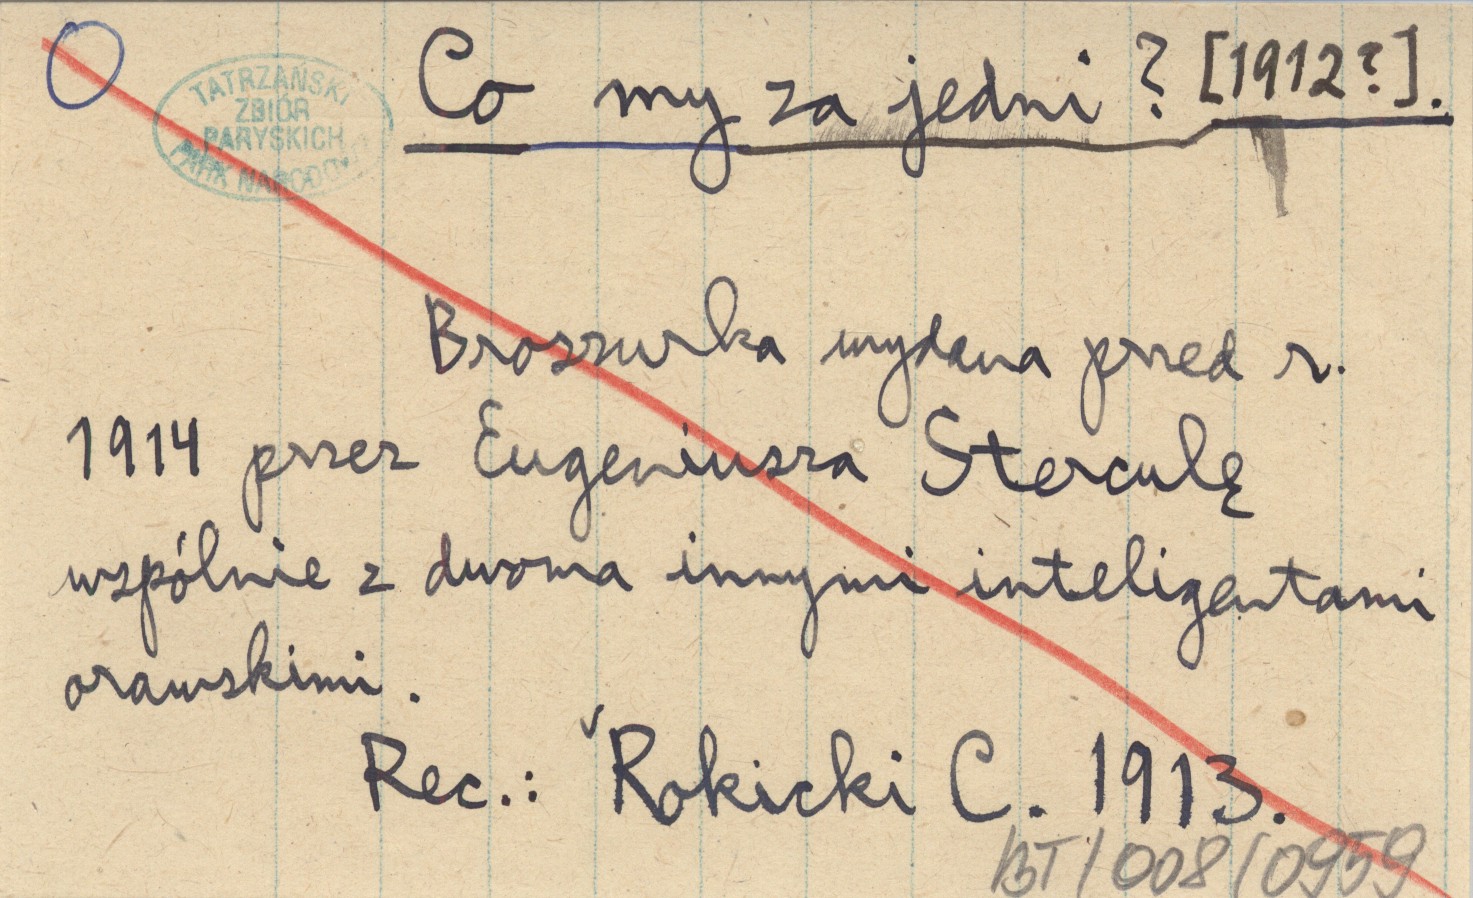 O
TATRZAŃSKI
ZBIÓR
PARYSKICH
PARK NARODOWY
Co my za jedni? [1912?].
Broszurka wydana przed r.
1914 przez Eugeniusza Sterculę
wspólnie z dwoma innymi inteligentami
orawskimi.
Rec.: Rokicki C. 1913.
BT/008/0959